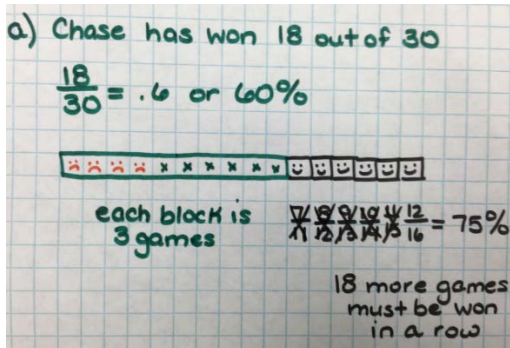 a) Chase has won 18 out of 30
18/30 = .6 or 60%
x x x x x x
each block is
3 games
7/11 8/12 9/13 10/14 11/15 12/16 = 75%
18 more games
must be won
in a row